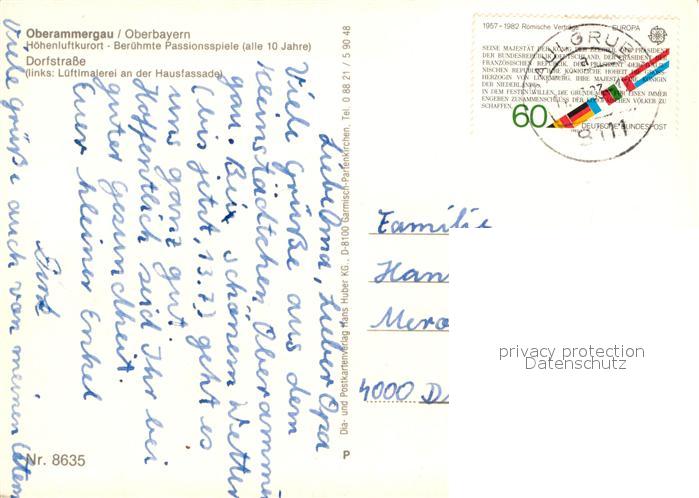 Oberammergau / Oberbayern
Höhenluftkurort - Berühmte Passionsspiele (alle 10 Jahre)
Dorfstraße
(links: Lüftlmalerei an der Hausfassade)
Liebe Oma, Lieber Opa
Viele Grüße aus dem
kleinstädtchen Oberammer
gau. Bei schönem Wetter
(bis jetzt, 13.7) geht es
uns ganz gut
Hoffentlich seid Ihr bei
guter Gesundheit.
Euer kleiner Enkel
Dirk
Viele Grüße auch von meinen Eltern
Nr. 8635
P
Dia- und Postkartenverlag Hans Huber KG., D-8100 Garmisch-Partenkirchen. Tel. 0 88 21 / 5 90 48
1957-1982 Römische Verträge EUROPA
SEINE MAJESTÄT DER KÖNIG DER BELGIER, DER PRÄSIDENT
DER BUNDESREPUBLIK DEUTSCHLAND, DER PRÄSIDENT DER
FRANZÖSISCHEN REPUBLIK, DER PRÄSIDENT DER ITALIE
NISCHEN REPUBLIK, IHRE KÖNIGLICHE HOHEIT DIE GROSS
HERZOGIN VON LUXEMBURG, IHRE MAJESTÄT DIE KÖNIGIN
DER NIEDERLANDE,
IN DEM FESTEN WILLEN, DIE GRUNDLAGEN FÜR EINEN IMMER
ENGEREN ZUSAMMENSCHLUSS DER EUROPÄISCHEN VÖLKER ZU
SCHAFFEN,
60
DEUTSCHE BUNDESPOST
8111
Familie
Han
Mero
4000 D
privacy protection
Datenschutz